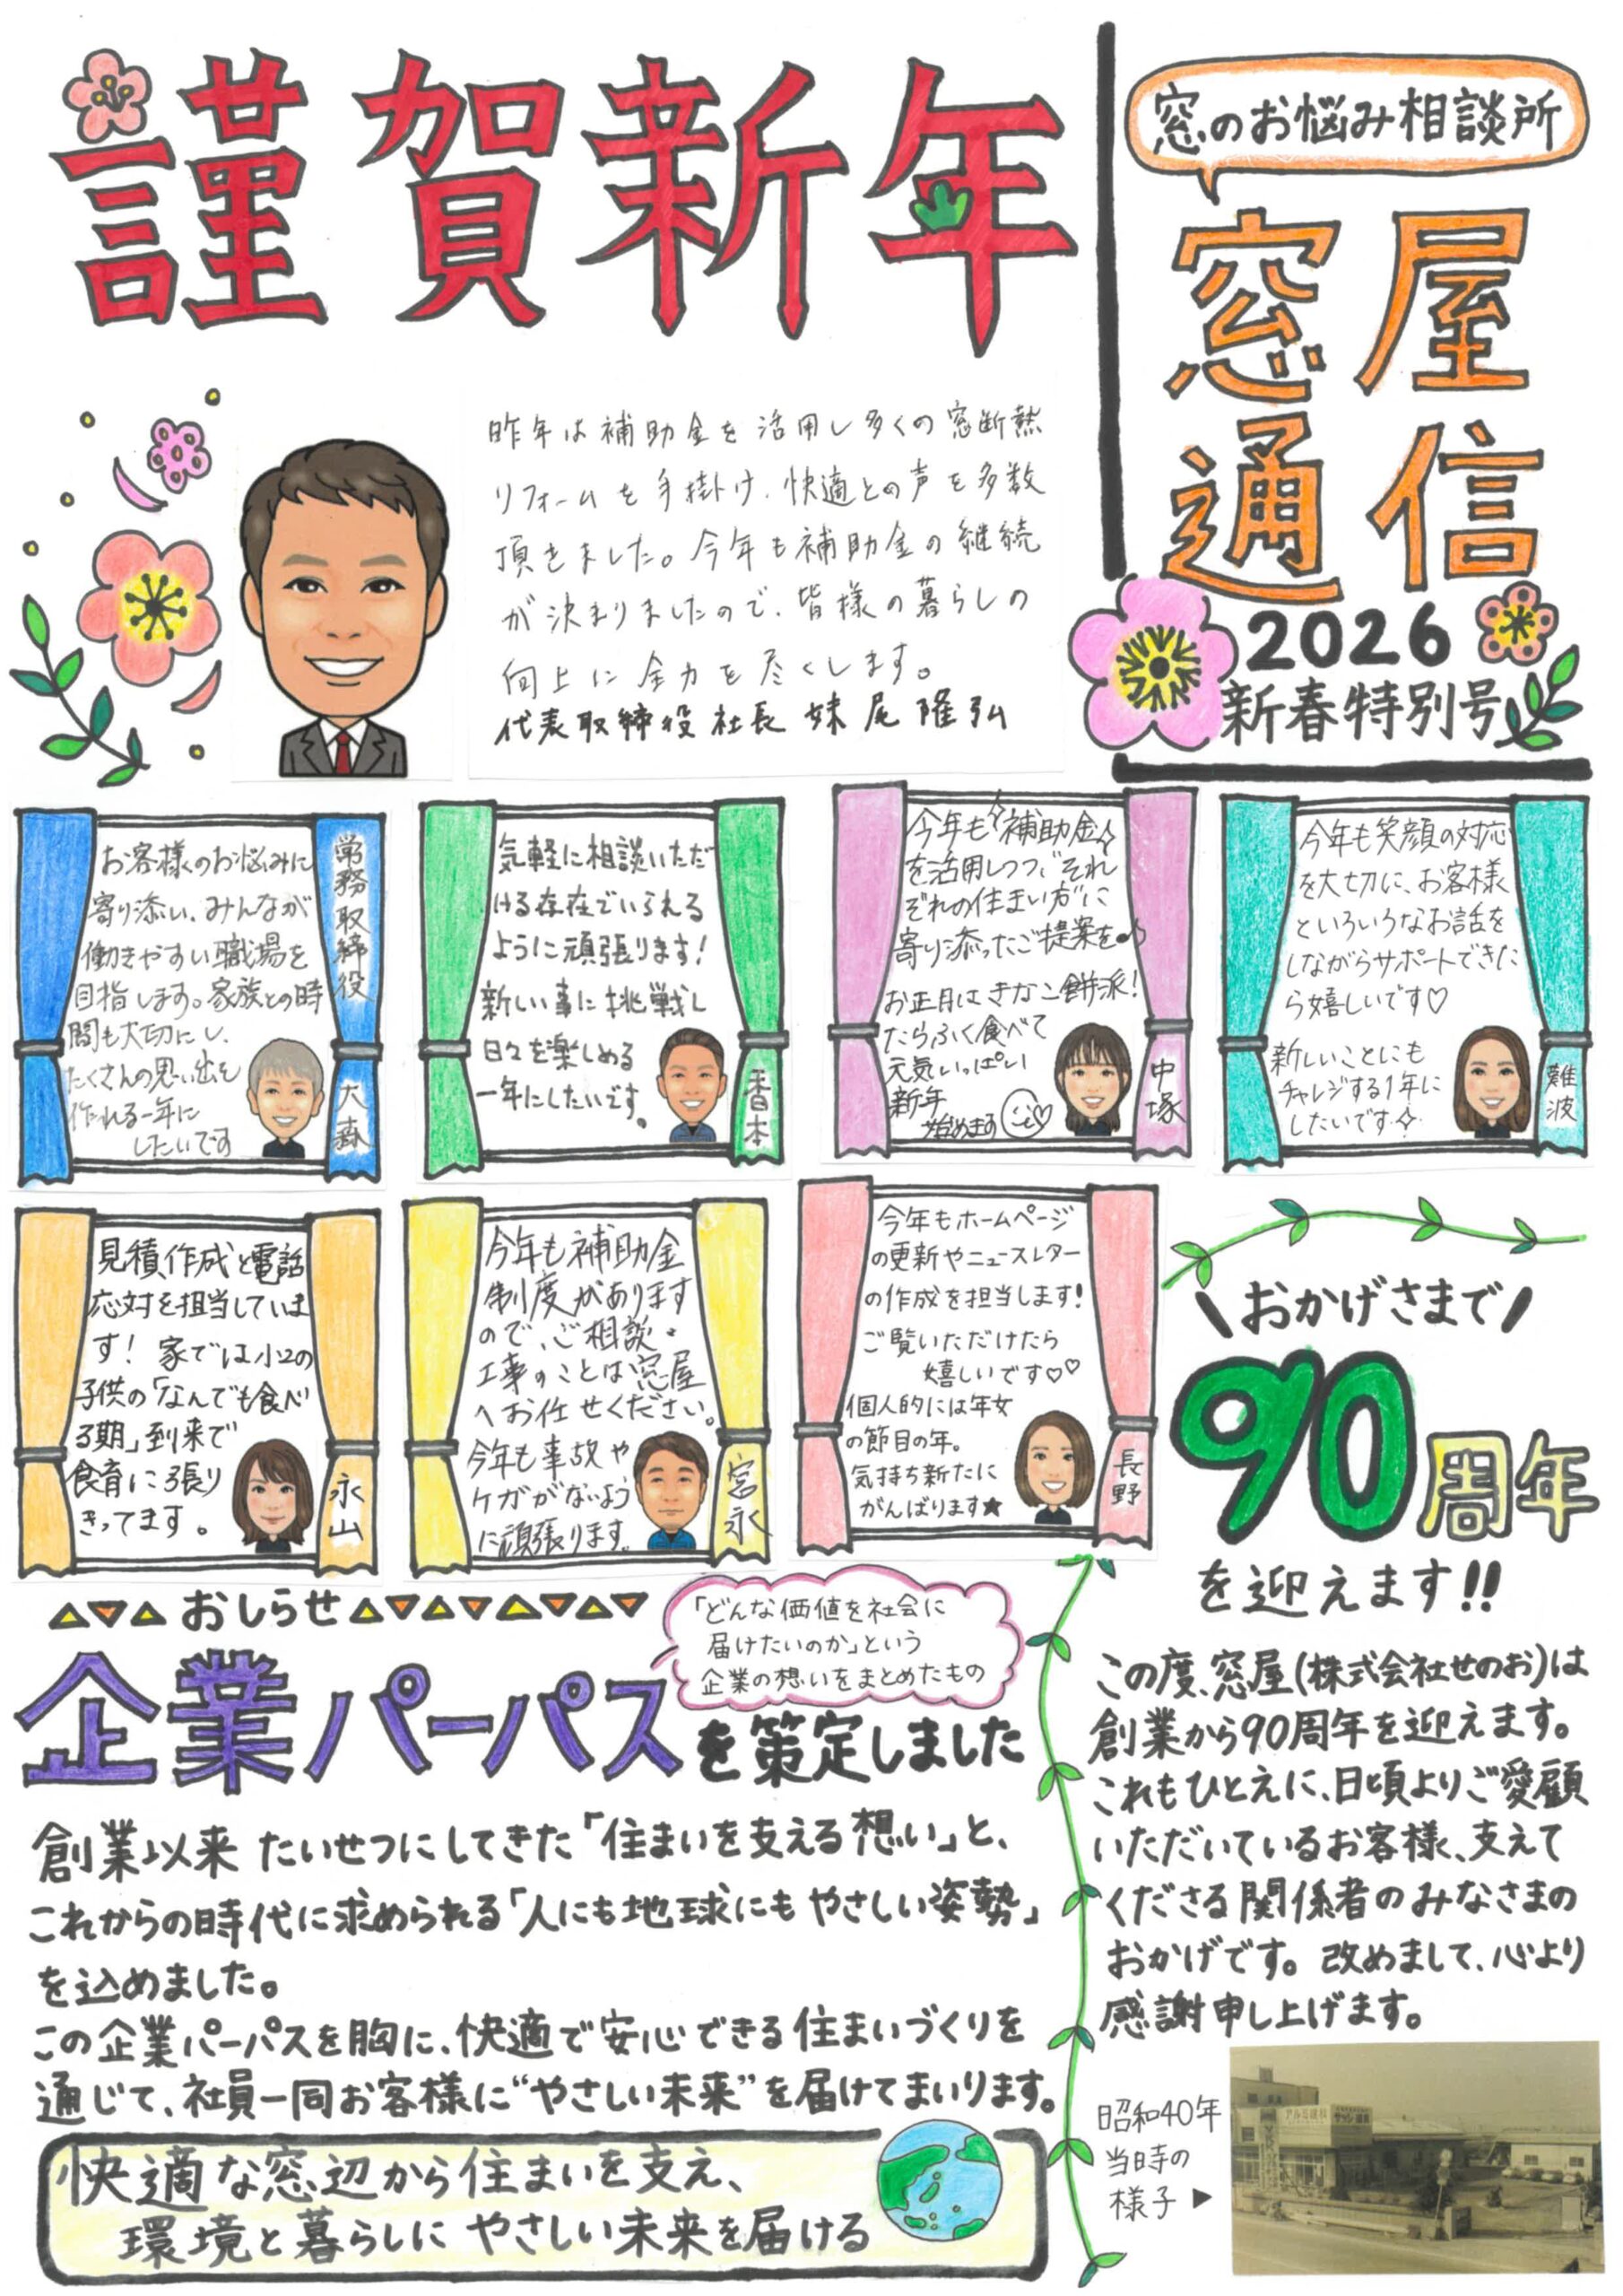 謹賀新年
窓のお悩み相談所
窓屋
通信
2026
新春特別号
昨年は補助金を活用し多くの窓断熱
リフォームを手掛け、快適との声を多数
頂きました。今年も補助金の継続
が決まりましたので、皆様の暮らしの
向上に全力を尽くします。
代表取締役社長 妹尾隆弘
お客様のお悩みに
寄り添い、みんなが
働きやすい職場を
目指します。家族との時
間も大切にし、
たくさんの思い出を
作れる一年に
したいです
常務取締役
大森
気軽に相談いただ
ける存在でいられる
ように頑張ります!
新しい事に挑戦し
日々を楽しめる
一年にしたいです。
香本
今年も補助金
を活用しつつ、"それ
ぞれの住まい方"に
寄り添ったご提案を♪
お正月はきなこ餅派!
たらふく食べて
元気いっぱい
新年
始めます
中塚
今年も笑顔の対応
を大切に、お客様
といろいろなお話を
しながらサポートできた
ら嬉しいです♡
新しいことにも
チャレンジする1年に
したいです☆
難波
見積作成と電話
応対を担当していま
す! 家では小2の
子供の「なんでも食べ
る期」到来で
食育に張り
きってます。
永山
今年も補助金
制度があります
ので、ご相談・
工事のことは窓屋
へお任せください。
今年も事故や
ケガがないよう
に頑張ります。
宮永
今年もホームページ
の更新やニュースレター
の作成を担当します!
ご覧いただけたら
嬉しいです♡♡
個人的には年女
の節目の年。
気持ち新たに
がんばります★
長野
\おかげさまで/
90周年
を迎えます!!
この度、窓屋(株式会社せのお)は
創業から90周年を迎えます。
これもひとえに、日頃よりご愛顧
いただいているお客様、支えて
くださる関係者のみなさまの
おかげです。改めまして、心より
感謝申し上げます。
昭和40年
当時の
様子▶
おしらせ
「どんな価値を社会に
届けたいのか」という
企業の想いをまとめたもの
企業パーパスを策定しました
創業以来たいせつにしてきた「住まいを支える想い」と、
これからの時代に求められる「人にも地球にもやさしい姿勢」
を込めました。
この企業パーパスを胸に、快適で安心できる住まいづくりを
通じて、社員一同お客様に"やさしい未来"を届けてまいります。
快適な窓辺から住まいを支え、
環境と暮らしにやさしい未来を届ける